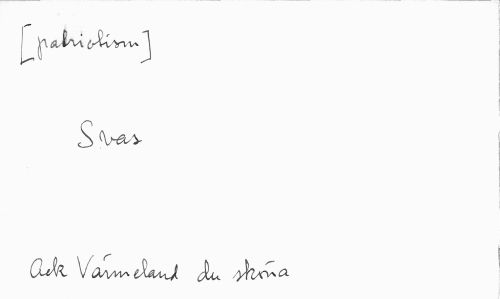 [patriotism]
Svas
Ack Värmeland du sköna